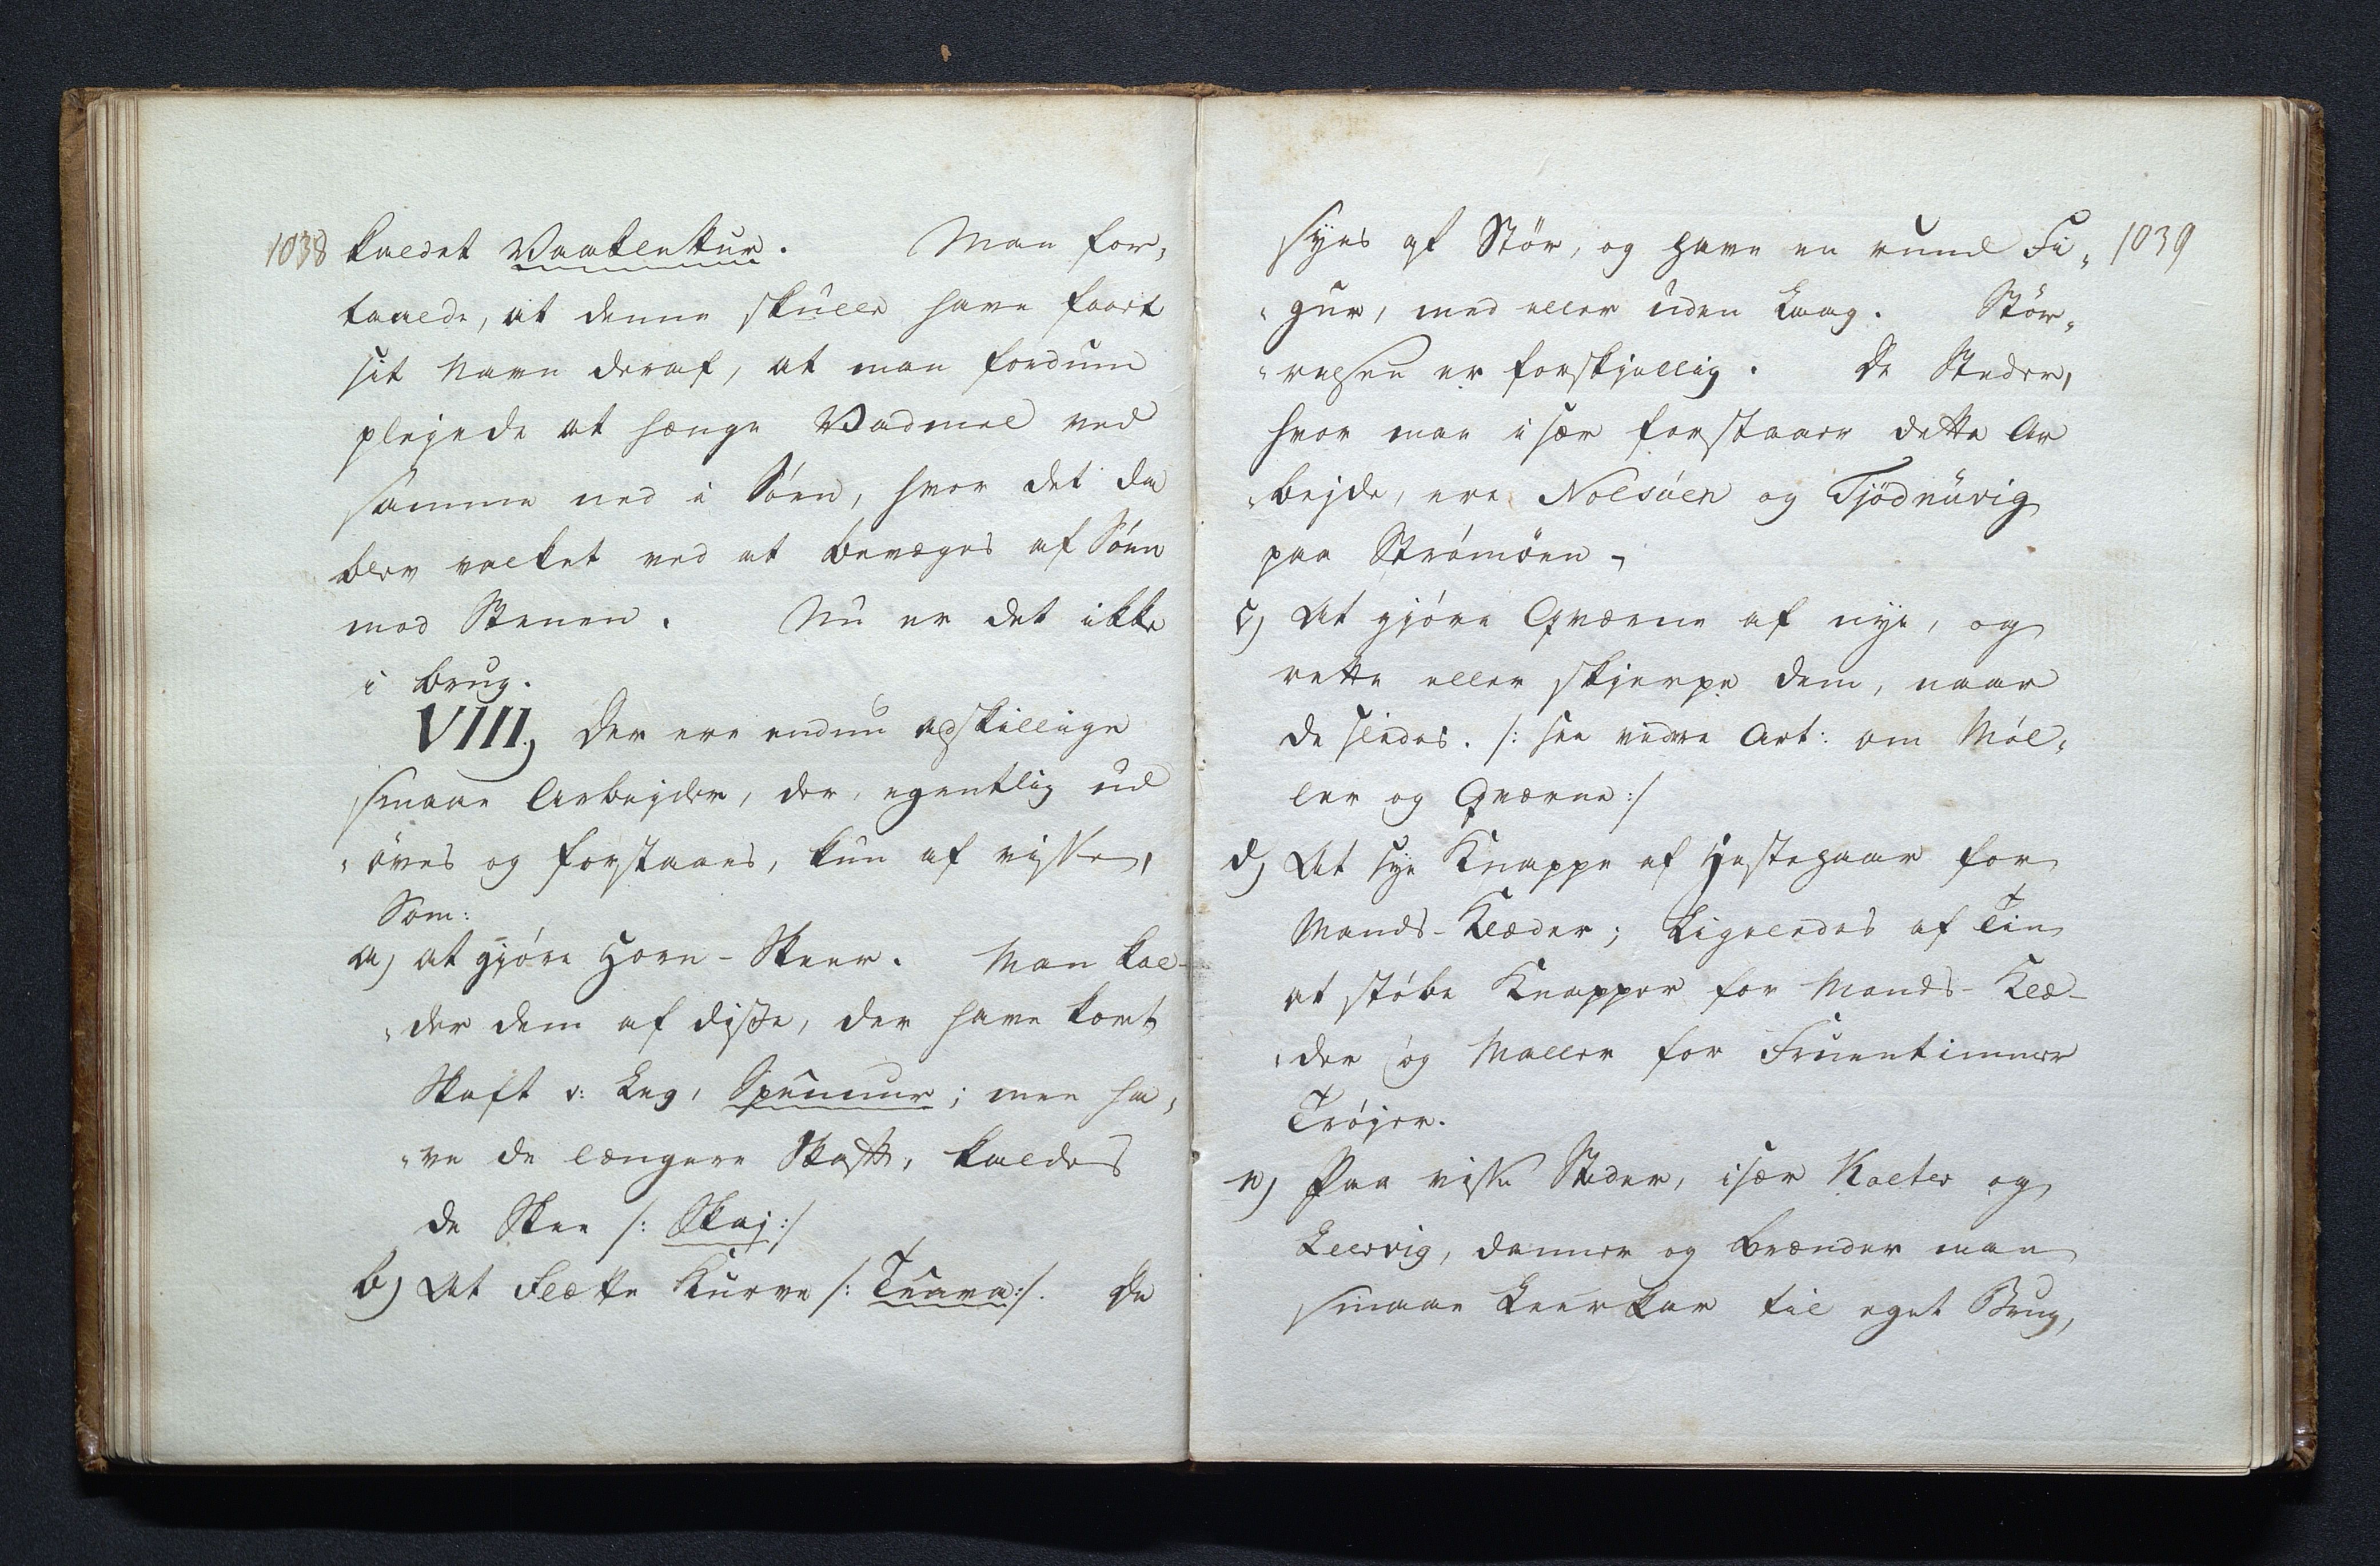 1038 kaldet Vaalenkur. Man for„
taalde, at denne skulle have faaet
sit Navn deraf, at man fordum
plejede at hænge Vadmel ved
samme ned i Söen, hvor det da
blev valket ved at bevæges af Söen
mod Stenen. Nu er det ikke
i brug.
VIII.) Der ere endnu adskillige
smaae Arbejder, der, egentlig ud
„öves og forstaaes, kun af visse,
Som:
a) at gjöre Horn-Skeer. Man kal-
„der dem af disse, der have kort
Skaft v: Leg, Spunnur; men ha„
„ve de længere Skaft, kaldes
de Skee /: Skaj :/
b) At Flætte Kurve /: Teava :/. De
syes af Stör, og have en rund Fi„ 1039
„gur, med eller uden Laag. Stör„
„relsen er forskjellig. De Steder,
hvor man især forstaaer dette Ar
„bejde, ere Nolsöen og Tjödnüvig
paa Strömöen.
c) At gjöre Qværne af nye, og
rette eller skjerpe dem, naar
de slides. /: see vedre Art: om Möl„
ler og Qværne :/
d) At sye Knappe af Hestehaar for
Mands-Klæder; Ligeledes af Tin
at stöbe Knapper for Mands-Klæ-
„der og Maller for Fruentimmer
Tröjer.
e) Paa visse Steder, især Kolter og
Leervig, danner og brænder man
smaae Leerkar til eget Brug,